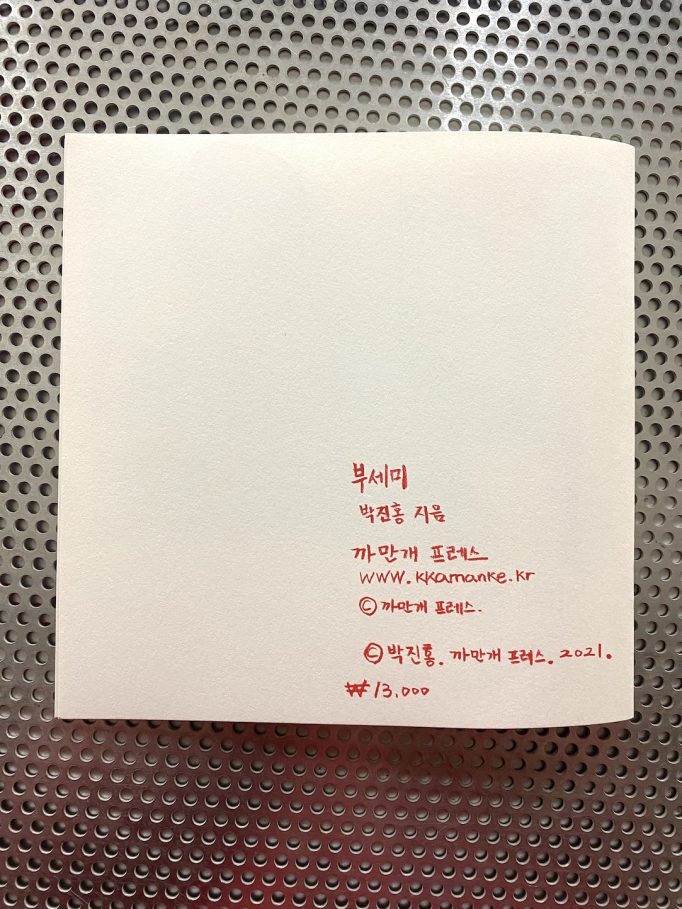 부세미
박진홍 지음
까만개 프레스
www.kkamanke.kr
©까만개 프레스.
©박진홍. 까만개 프레스. 2021.
₩13,000